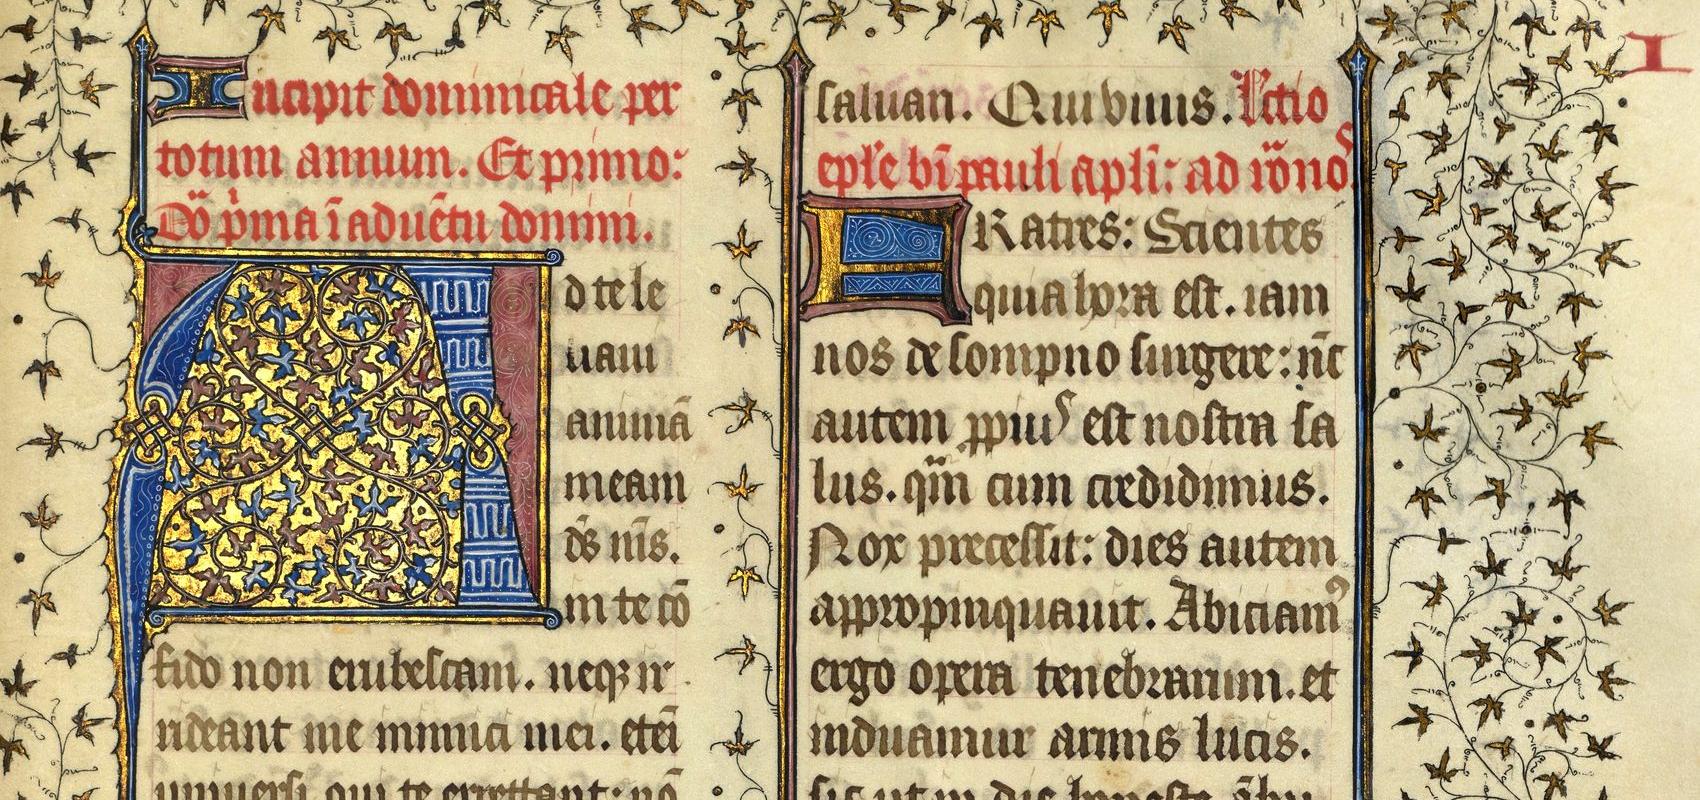 Incipit dominicale per
totum annum. Et primo:
Dõ p̃ma ĩ aduẽtu domini.
Ad te le
uaui
animã
meam
d̃s m̃s.
in te cõ
fido non erubescam. neqꝫ ir
rideant me inimici mei. eteĩ
uniuersi qui te expectant: nõ
I
saluari. Qui viuis. Lectio
ep̃le bĩ pauli apl̃i: ad rõnoˢ.
FRatres: Scientes
quia hora est. iam
nos de sompno surgere: ñc
autem ꝓpiuˢ est nostra sa
lus. qm̃ cum credidimus.
Nox precessit: dies autem
appropinquauit. Abiciamꝰ
ergo opera tenebrarum. et
induamur armis lucis.
sic ut in die honeste ãbu